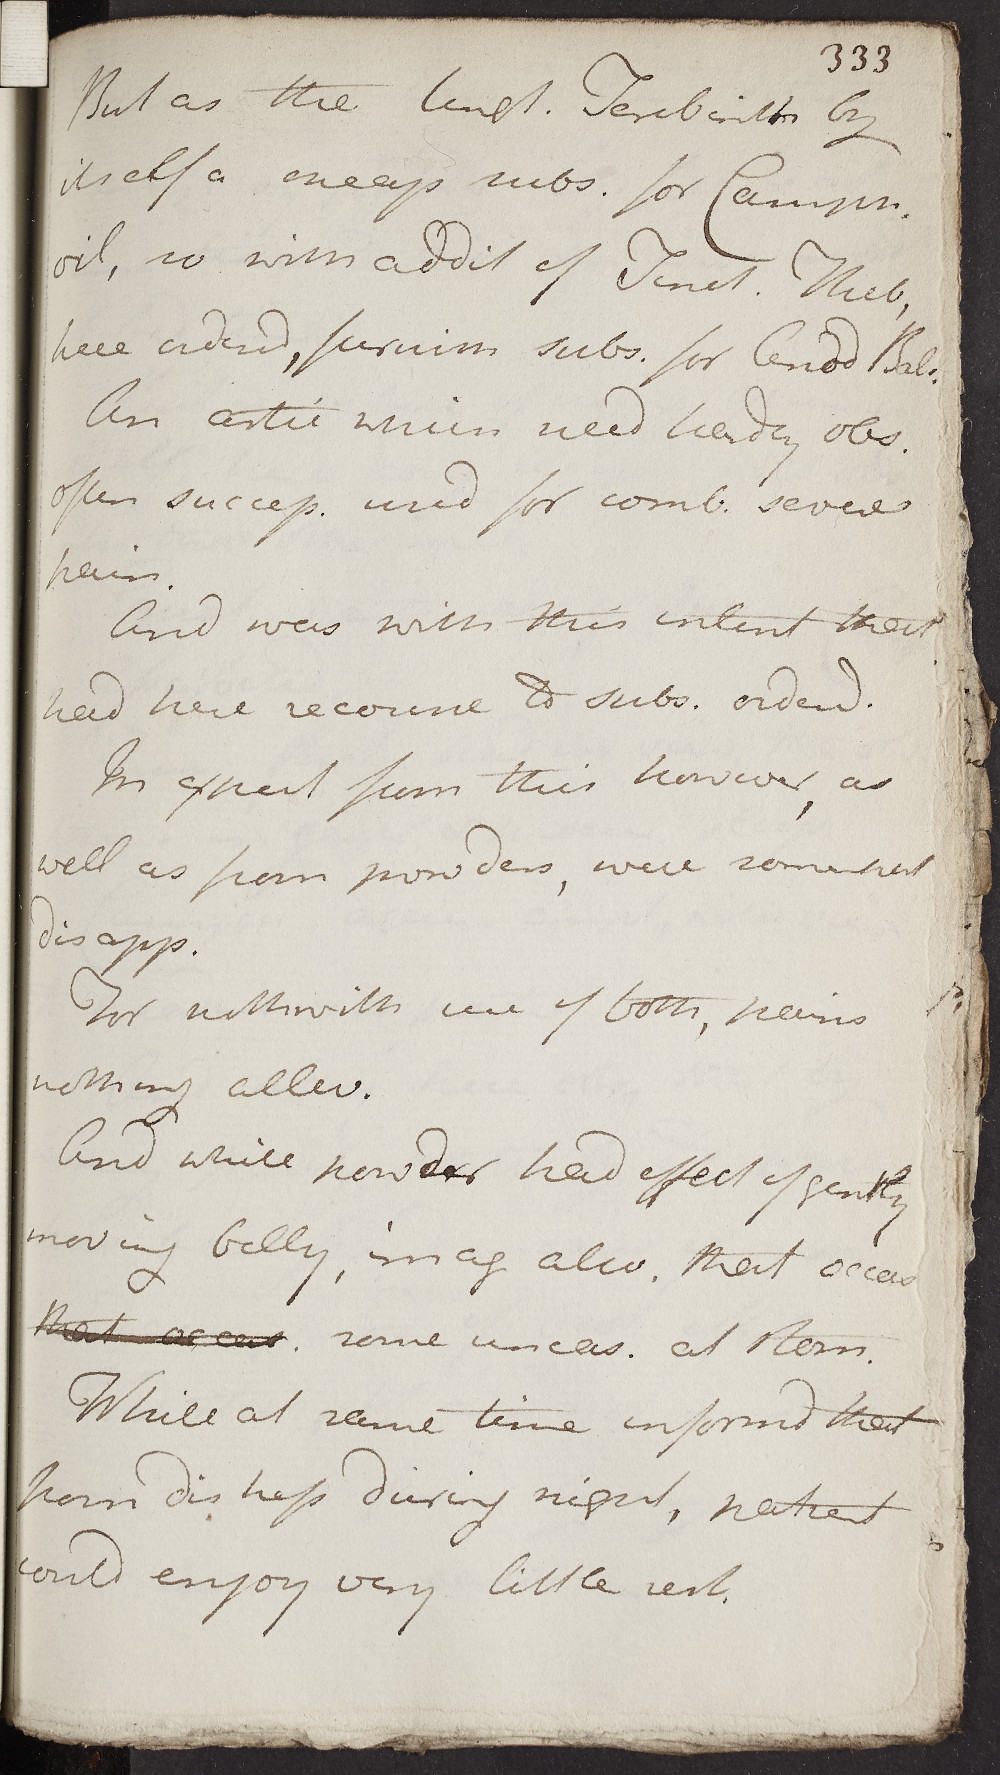 333
But as the Ungt. Terebinth by
itself a cheap subs. for Camph.
oil, so with addit of Tinct. Theb,
here orderd, furnish subs. for Anod Bals.
An artic which need hardly obs.
often success. used for comb. severe
pain.
And was with this intent that
had here recourse to subs. orderd.
In expect from this however, as
well as from powders, were somewhat
disapp.
For notwith use of both, pains
nothing allev.
And while powder had effect of gently
moving belly, imag also. that occas
that occas. some uneas. at Stom.
While at same time informd that
from distress during night, patient
could enjoy very little rest.